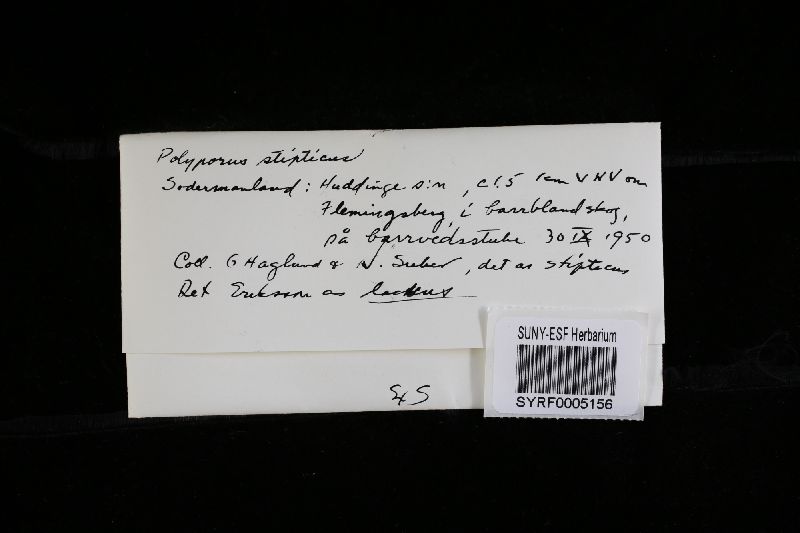 Polyporus stipticus
Sodermanland: Huddinge s:n, c1.5 km VNV om
Flemingsberg, i barrblandskog,
på barrvedsstubbe 30 IX 1950
Coll. G Haglund & N. Suber, det as stipticus
Det Eriksson as lacteus
S+S
SUNY-ESF Herbarium
SYRF0005156